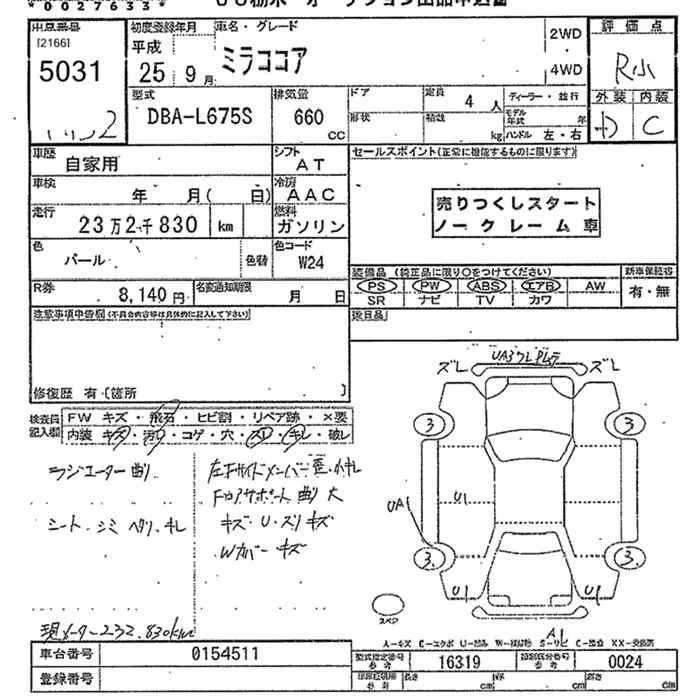 *0027633*
出品番号 [2166] 5031
初度登録年月 平成 25年 9月
車名・グレード ミラココア
2WD 4WD
評価点 R
型式 DBA-L675S
排気量 660 CC
ドア 形状
定員 4人
積載 kg
ディーラー・並行
モデル年式 年
ハンドル 左・右
外装 D 内装 C
車歴 自家用
シフト AT
セールスポイント(正常に機能するものに限ります)
車検 年 月( 日)
冷房 AAC
売りつくしスタート
ノークレーム車
走行 23万2千830 km
燃料 ガソリン
色 パール 色替
色コード W24
装備品 (純正品に限り○をつけてください) 新車保証書
PS PW ABS エアB AW 有・無
SR ナビ TV カワ
R券 8,140円
名変通知期限 月 日
後日品
注意事項申告欄(不具合内容等は具体的に記入して下さい)
修復歴 有〔箇所 〕
検査員記入欄
FW キズ・飛石・ヒビ割・リペア跡・×要
内装 キズ・汚れ・コゲ・穴・スレ・キレ・破レ
ラジエーター曲り
シート シミ ヘタリ キレ
左下サイドメンバー
フロアサポート曲り大
キズ・U・スリキズ
Wカバー キズ
ズレ ズレ
3 3
UA1 U1
3 3
U1 U1
スペア
現メーター232,830km
A-キズ E-エクボ U-凹み W-補修跡 S-サビ C-腐食 XX-交換済
車台番号 0154511
型式指定番号 参考 16319
類別区分番号 参考 0024
登録番号
長さ cm 幅 cm 高さ cm